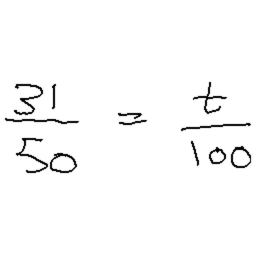 31/50 = t/100